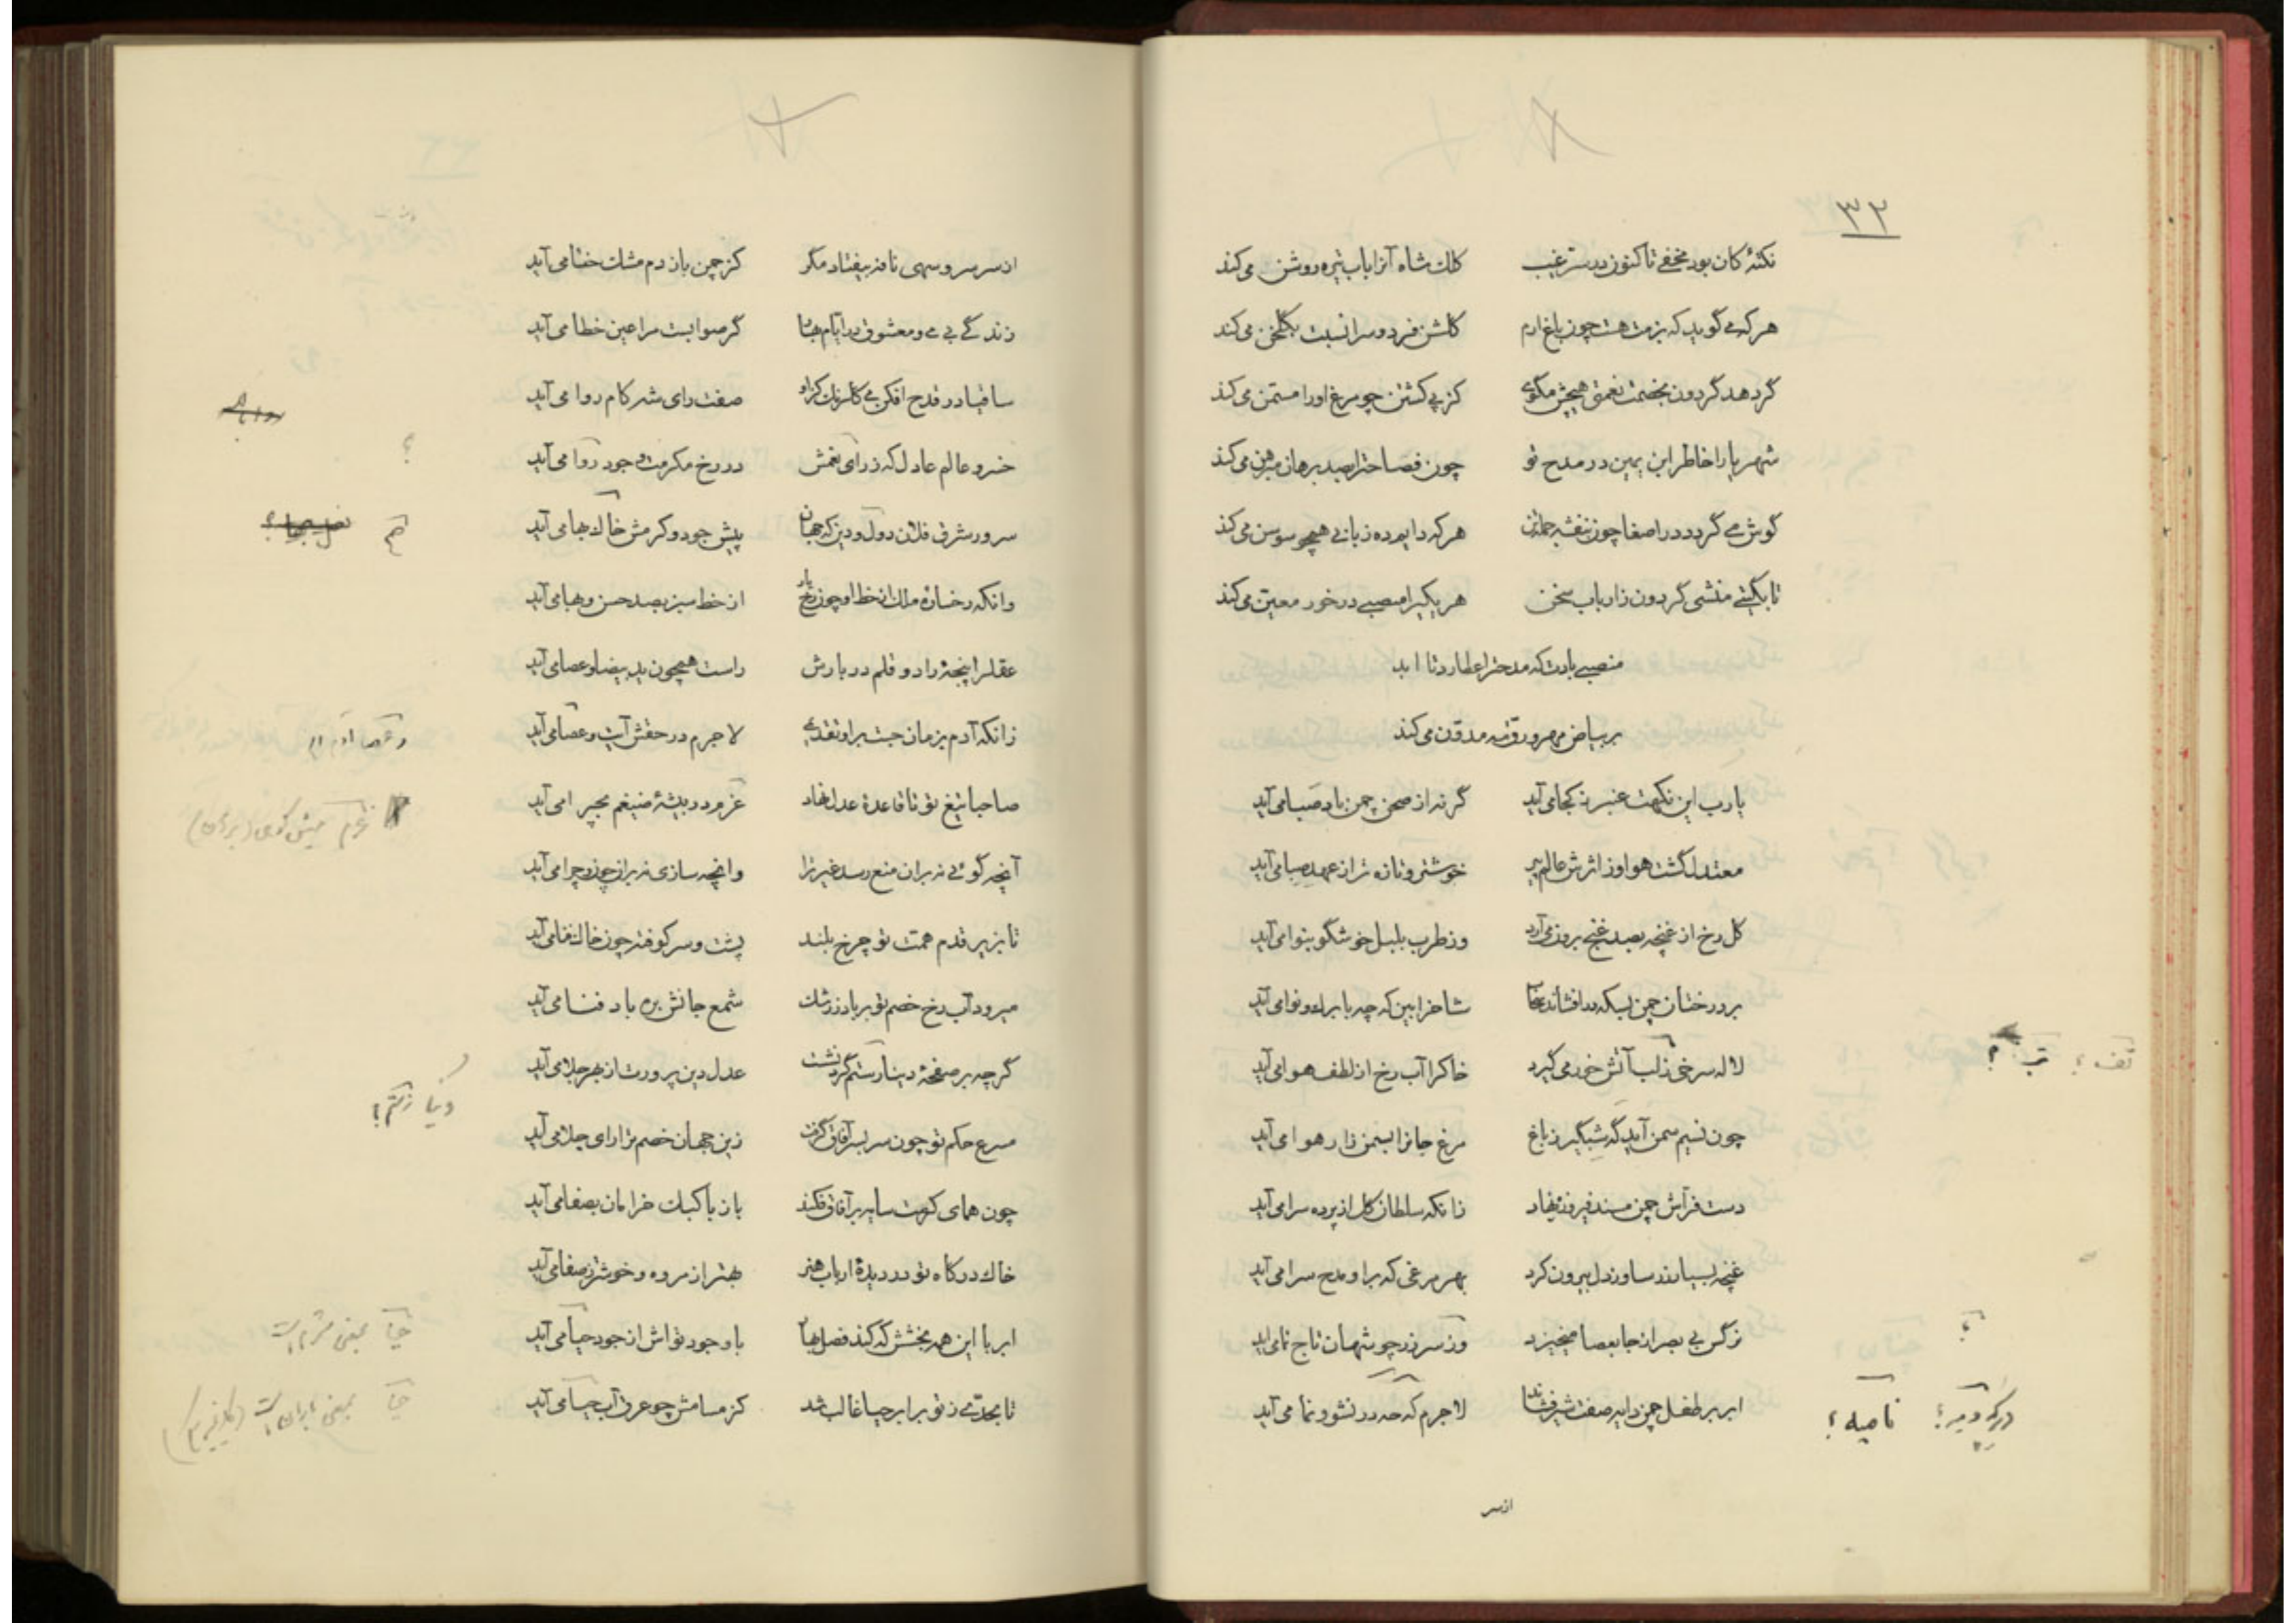 ۳۲
نکتهٔ کان بود مخفی تا کنون در ستر غیب کلک شاه آنرا بآب تیره روشن می‌کند
هر که می گوید که بزمت هست چون باغ ارم گلشن فردوس را نسبت بگلخن می‌کند
گر دهد گردون بخصمت نعمتی هیچش مگوی کز پی کشتن چو مرغ او را مسمن می‌کند
شهریارا خاطر ابن یمین در مدح تو چون فصاحترا بصد برهان مبرهن می‌کند
گوش می گردد در اصغا چون بنفشه جمله تن هر که دایم ده زبانی همچو سوسن می‌کند
تا بگیتی منشی گردون ز ارباب سخن هر یکیرا منصبی در خور معین می‌کند
منصبی بادت که مدحترا عطارد تا ابد
بر بیاض مهر و رو مدون می‌کند
یارب این نکهت عنبر ز کجا می آید گر نه از صحن چمن باد صبا می آید
معتدل گشت هوا وز اثرش عالم پیر خوشتر و تازه تر از عهد صبا می آید
گل رخ از غنچه بصد غنج برون می آرد وز طرب بلبل خوشگو بنوا می آید
بر درختان چمن بسکه در افشاند سحاب شاخرا بین که چه با برگ و نوا می آید
لاله سرخی ز لب آتش خور می گیرد خاکرا آب رخ از لطف هوا می آید
تف ؟ تب ؟
چون نسیم سمن آید گه شبگیر ز باغ مرغ جانرا بسمن زار هوا می آید
دست فراش چمن مسند فیروزه نهاد زانکه سلطان گل از پرده سرا می آید
غنچه بسیار نسا ور ز دل بیرون کرد بهر مرغی که بر او مدح سرا می آید
نرگس بی بصر از جا بعصا میخیزد وز سر زر چو شهان تاج نما می آید
؟
ابر بر طفل چمن دایه صفت شیر فشاند لاجرم که مه در نشو و نما می آید
نامیه ؟
از سر
از سر سرو سهی نافه بیفتاد مگر کز چمن باز دم مشک ختا می آید
زندگی بی می و معشوق در ایام بهار گر صوابست مرا عین خطا می آید
ساقیا در قدح افکن می گلرنگ کزاو صفت رای شه کام روا می آید
خسرو عالم عادل که ز رای نعمش در رخ مکرمت و جود روا می آید
؟
سرور شرق فلان دول و دین که جهان پیش جود و کرمش خاک بها می آید
وانکه رخسارهٔ ملک از خط او چون رخ یار از خط سبز بصد حسن و بها می آید
عقلرا پنجهٔ راد و قلم دربارش راست همچون ید بیضا و عصا می آید
زانکه آدم بزمان جست بر او تقدمی لاجرم در حقش آیت و عصا می آید
و عصی آدم
صاحبا تیغ تو تا قاعدهٔ عدل نهاد غرم در بیشهٔ ضیغم بچرا می آید
غرم میش کوهی (برهان)
آنچه گوئی نه بر آن منع رسد غیر ترا وانچه سازی نه بر آن چون و چرا می آید
تا بزیر قدم همت تو چرخ بلند پشت و سر کوفته چون خاک فنا می آید
میرود آب رخ خصم تو بر باد ز رشک شمع جانش بره باد فنا می آید
گرچه بر صفحهٔ دینار ستم گرد نشست عدل دین پرورت از بهر جلا می آید
دنیا ز ستم ؟
مسرع حکم تو چون سر بسر آفاق گرفت زین جهان خصم ترا رای جلا می آید
چون همای کرمت سایه بر آفاق فکند باز با کبک خرامان بصفا می آید
خاک درگاه تو در دیدهٔ ارباب هنر بهتر از مروه و خوشتر ز صفا می آید
ابر با این همه بخشش که کند فصل بهار با وجود تواش از جود حیا می آید
حیا بمعنی شرم است
تا بحدی ز تو بر ابر حیا غالب شد کز مسامش چو عرق آب حیا می آید
حیا بمعنی باران است